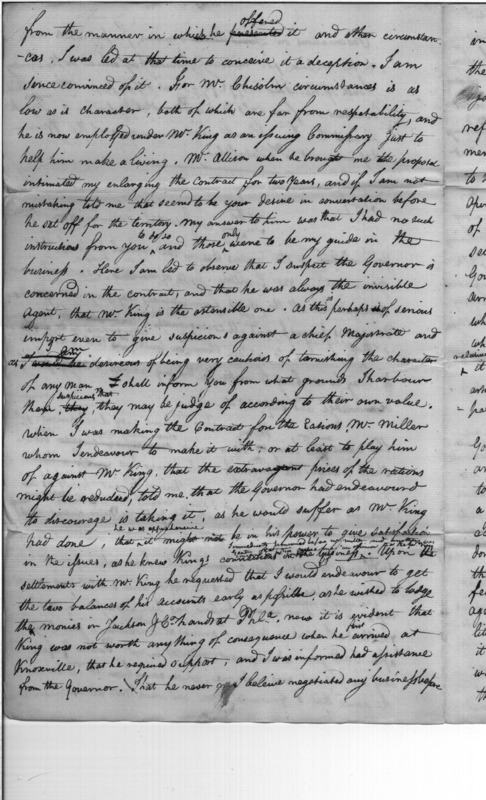 offered
from the manner in which he presented it and other circumstan-
-ces. I was led at that time to conceive it a deception. I am
sence convinced of it. For Mr. Chisolm circumstances is as
low as is character, both of which are far from respetability, and
he is now employed under Mr. King as an issuing Commissary just to
help him make a living. Mr. Allison when he brought me the proposal
intimated my enlarging the contract for two years, and if I am not
mistaking told me that seemd to be your desire in conversation before
he set off for the territory. My answer to him was that I had no such
instructions from you, and those only were to be my guide in the
business. Here I am led to observe that I suspect the Governor is
concerned in the contract, and that he was always the invisible
Agent, that Mr. King is the ostensible one. as this is perhaps of serious
import even to give suspicions against a chief Majistrate and
as I am desireous of being very cautious of tarnishing the character
of any man, I shall inform you from what grounds I harbour
them suspicions that they may be judge of according to their own value.
When I was making the Contract for the Rations, Mr. Miller
whom I endeavour to make it with, or at least to play him
of against Mr King, that the extravagent prices of the rations
might be reduced, told me, that the Governor had endeavourd
to discourage is taking it, as he would suffer as Mr. King
had done, he was apprehensive that it might not be in his power to give satisfaction
in the issues, as he knew Kings Upon the
settlements with Mr. King he requested that I would endeavour to get
the two balances of his accounts early as possible, as he wished to lodge
the monies in Jackson & Co hands at Phla. now it is evident that
King was not worth any thing of consequence when he first arrived at
Knoxville, that he required support, and I was informed had assistance
from the Governor. That he never I beleive negotiated any business before